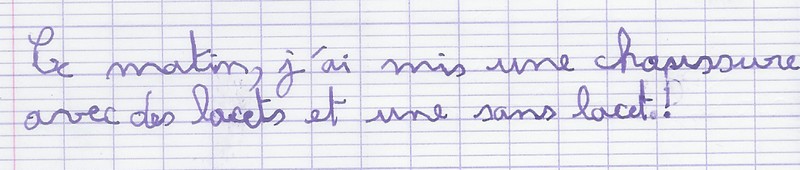 Ce matin, j'ai mis une chaussure
avec des lacets et une sans lacet.!